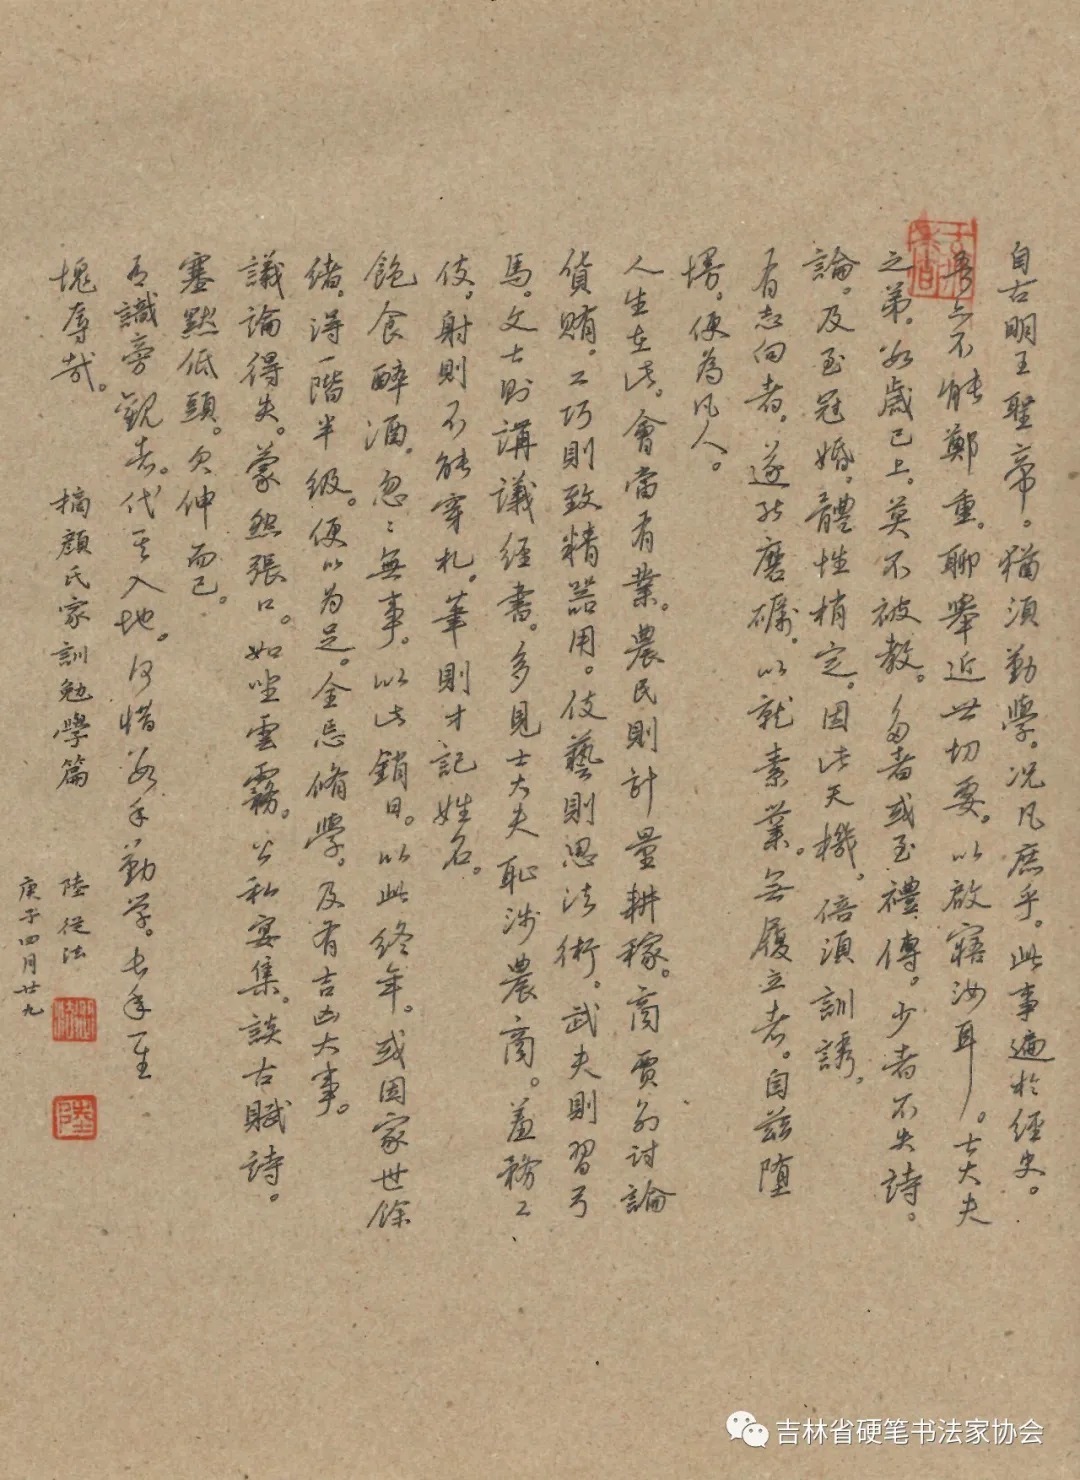 自古明王聖帝。猶須勤學。况凡庶乎。此事遍於經史。
吾亦不能鄭重。聊舉近世切要。以啟寤汝耳。士大夫
之弟。数歲已上。莫不被教。多者或至禮傳。少者不失詩。
論。及至冠婚。體性梢定。因此天機。倍須訓誘。
有志向者。遂能磨礪。以就素業。無履立者。自茲墮
慢。便為凡人。
人生在世。會當有業。農民則計量耕稼。商賈則討論
貨賄。工巧則致精器用。伎藝則思法術。武夫則習弓
馬。文士則講議經書。多見士大夫恥涉農商。羞務工
伎。射則不能穿札。筆則才記姓名。
飽食醉酒。忽〻無事。以此銷日。以此終年。或因家世餘
緒。得一階半级。便以为足。全忘脩學。及有吉凶大事。
議論得失。蒙然張口。如坐雲霧。公私宴集。談古賦詩。
塞默低頭。欠伸而已。
有識旁觀者。代其入地。何惜数年勤学。长年一生
愧辱哉。 摘顏氏家訓勉學篇
陸從法
庚子四月廿九
陸
吉林省硬笔书法家协会